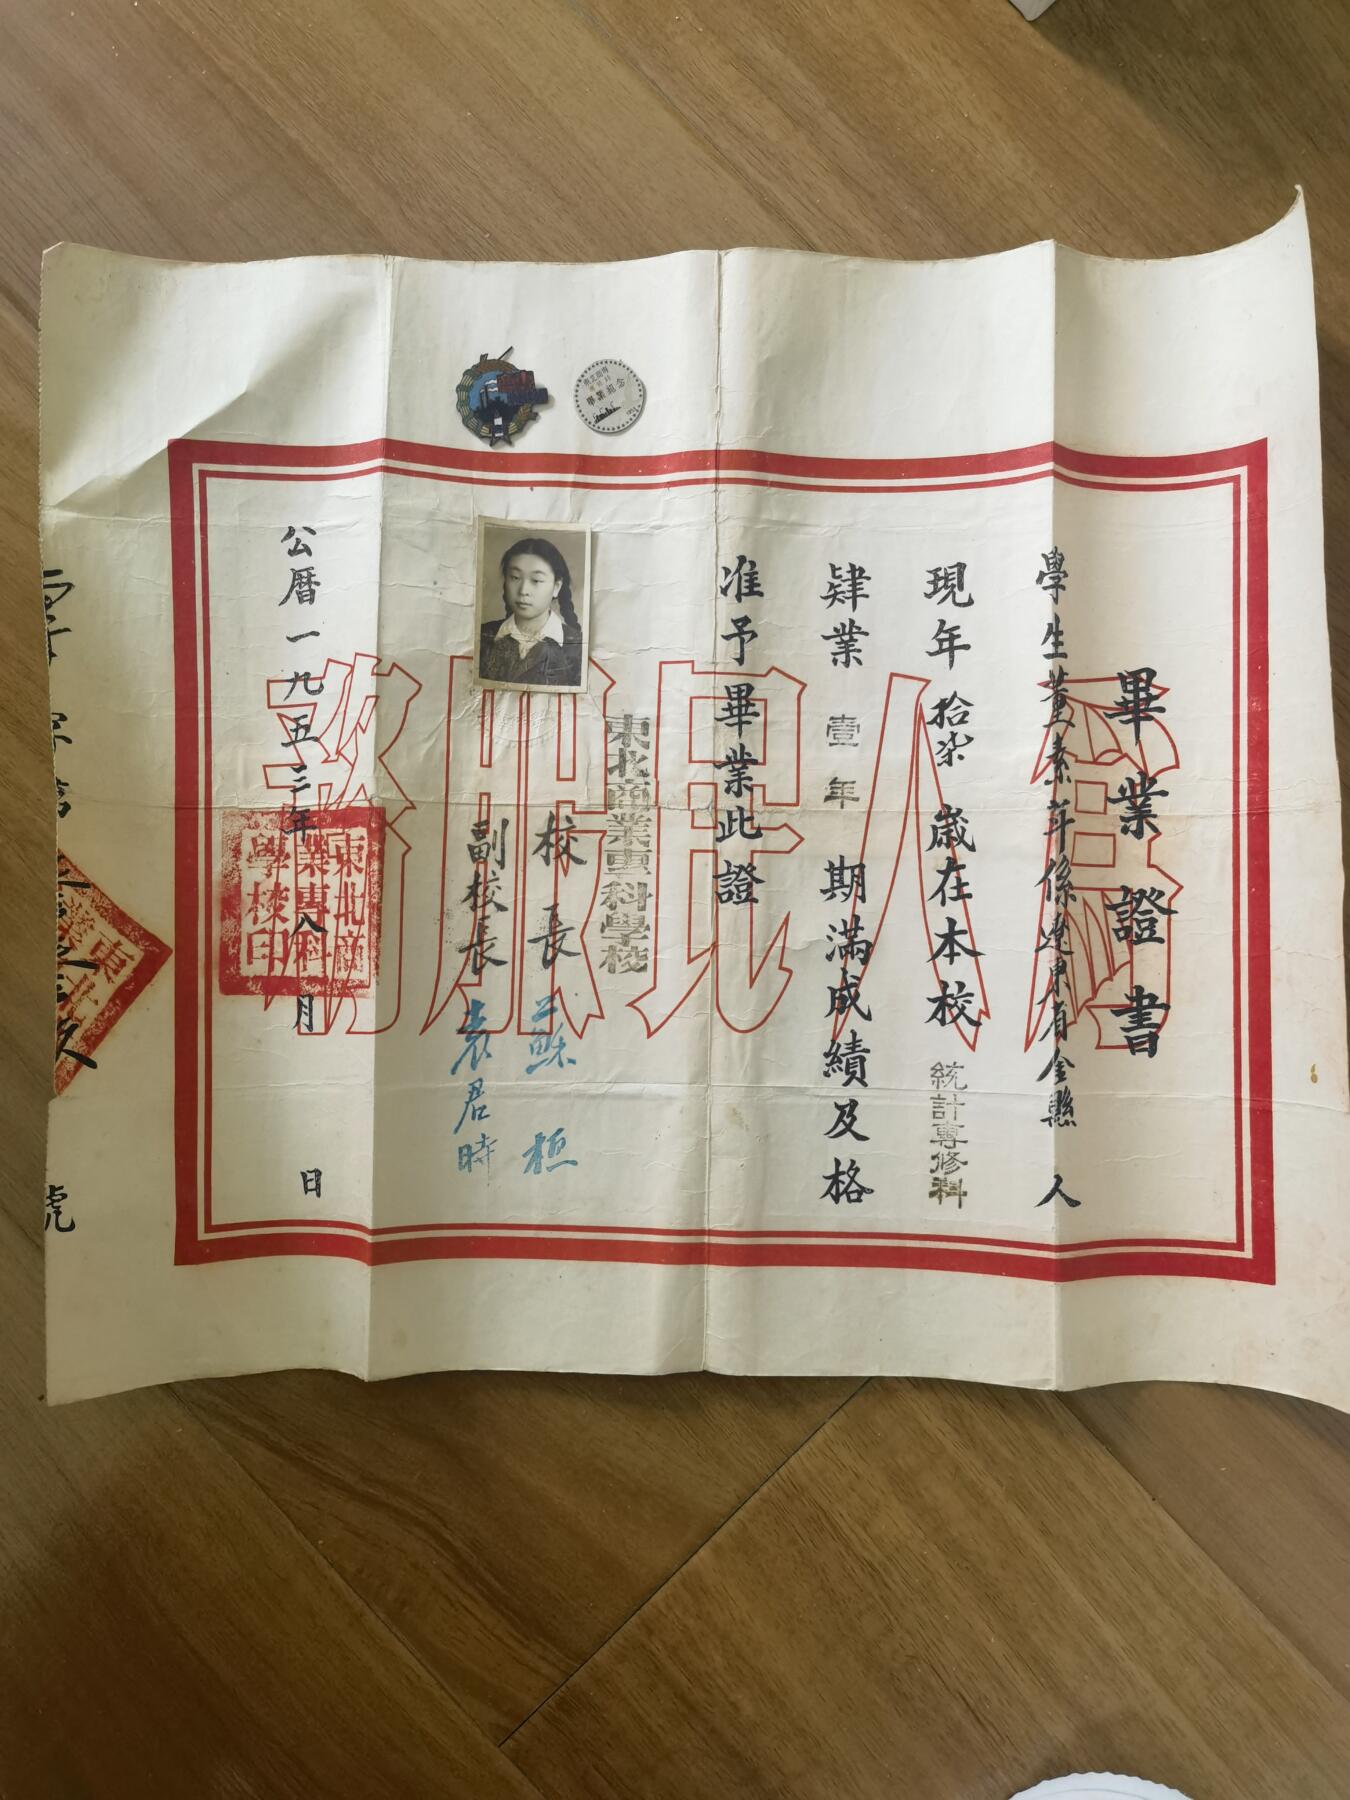 畢業證書
學生董素年係遼東省金縣人
現年拾柒歲在本校統計專修科
肄業壹年期滿成績及格
准予畢業此證
東北商業專科學校
校長蘇桓
副校長袁君時
公曆一九五三年八月 日
東北商
業專科
學校印
為人民服務
畢業紀念
號